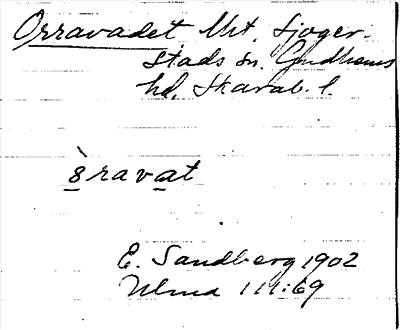 Orravadet Ukt. Sjoger-
stads sn. Gudhems
hd. Skarab. l.
òravat
E. Sandberg 1902
Ulma 111:69